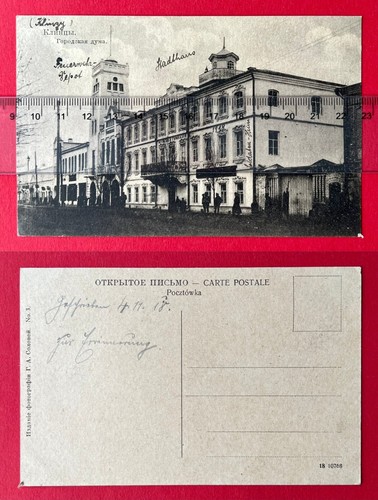 (Klinzy)
Клинцы.
Городская дума.
Feuerwehr-
Depot
Stadthaus
9 10 11 12 13 14 15 16 17 18 19 20 21 22 23
ОТКРЫТОЕ ПИСЬМО — CARTE POSTALE
Pocztówka
Geschrieben 4.11.18.
Zur Erinnerung
Изданіе фотографіи Г. А. No. 1.
18 10788